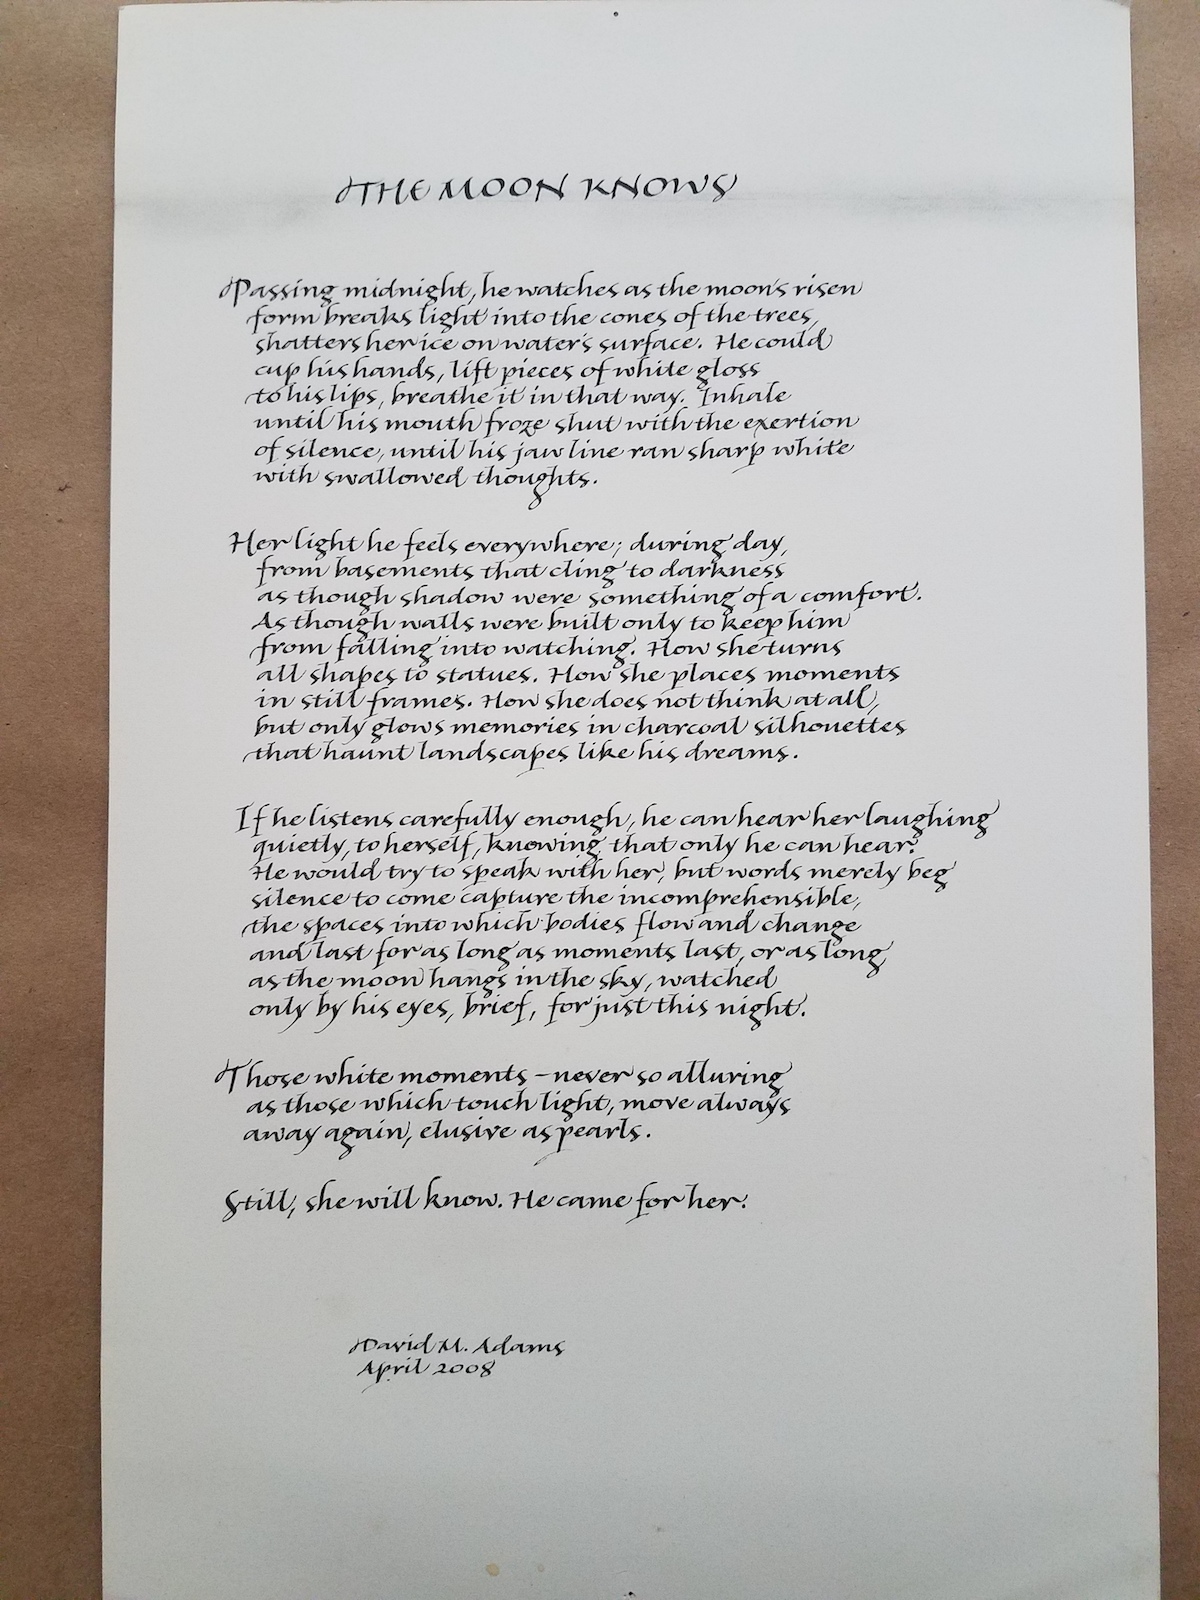 THE MOON KNOWS
Passing midnight, he watches as the moon's risen
form breaks light into the cones of the trees,
shatters her ice on water's surface. He could
cup his hands, lift pieces of white gloss
to his lips, breathe it in that way. Inhale
until his mouth froze shut with the exertion
of silence, until his jaw line ran sharp white
with swallowed thoughts.
Her light he feels everywhere; during day,
from basements that cling to darkness
as though shadow were something of a comfort.
As though walls were built only to keep him
from falling into watching. How she turns
all shapes to statues. How she places moments
in still frames. How she does not think at all,
but only glows memories in charcoal silhouettes
that haunt landscapes like his dreams.
If he listens carefully enough, he can hear her laughing
quietly, to herself, knowing that only he can hear.
He would try to speak with her, but words merely beg
silence to come capture the incomprehensible,
the spaces into which bodies flow and change
and last for as long as moments last, or as long
as the moon hangs in the sky, watched
only by his eyes, brief, for just this night.
Those white moments – never so alluring
as those which touch light, move always
away again, elusive as pearls.
Still, she will know. He came for her.
David M. Adams
April 2008